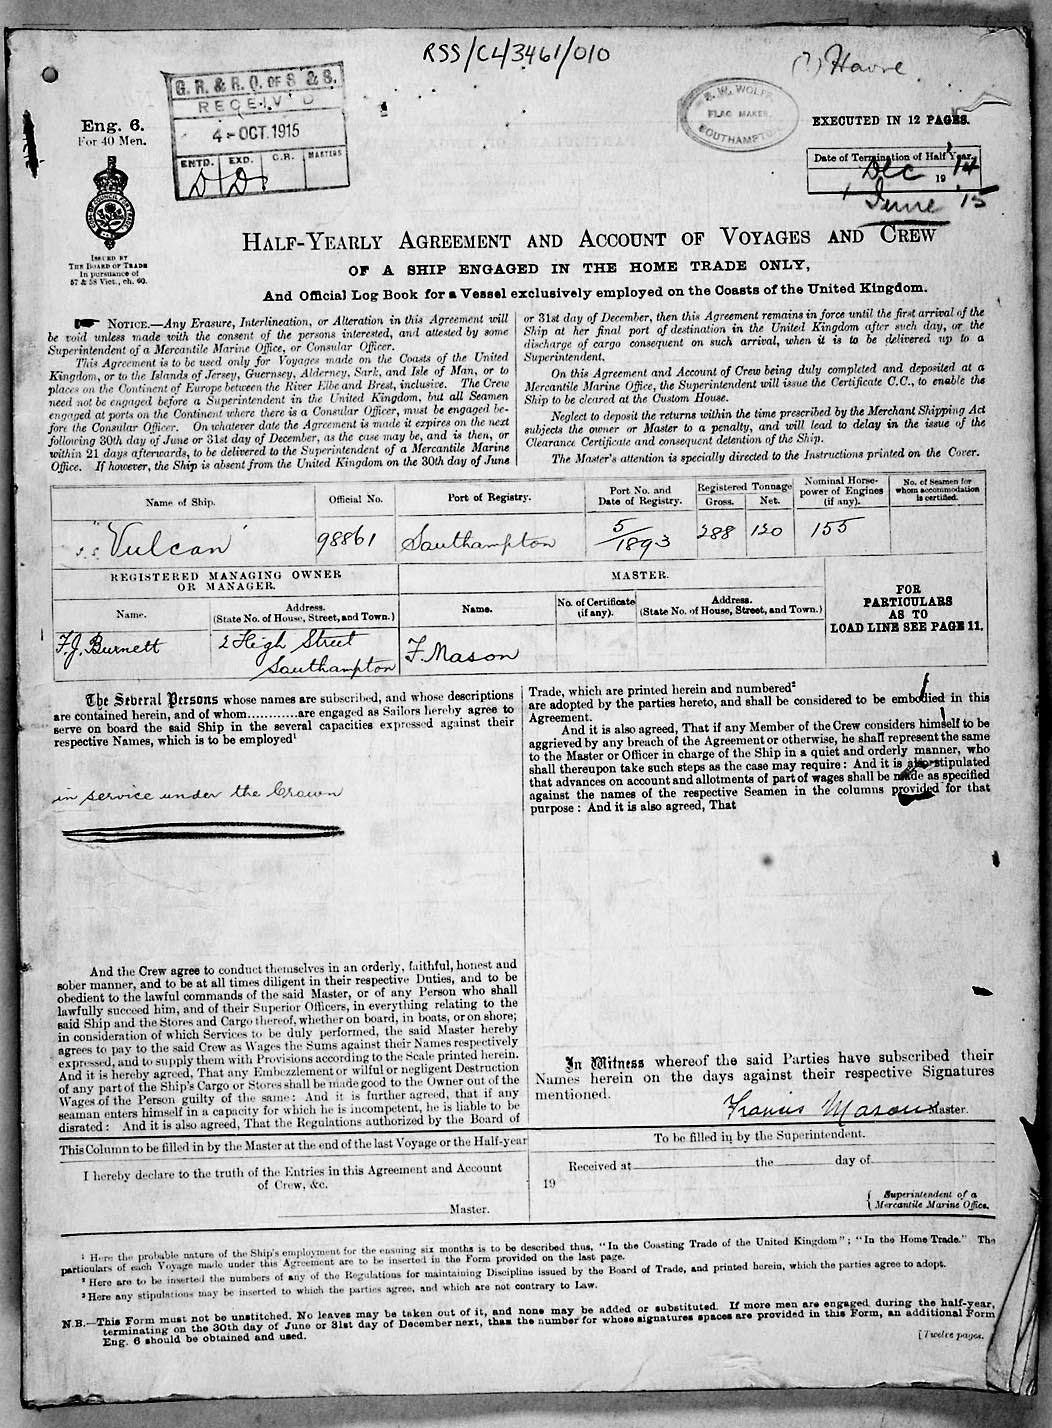 RSS/CL/3461/010
(?) Havre
G. R. & R. O. OF S & S.
RECEIV'D
4-OCT.1915
ENTD. EXD. C.R. MASTERS
D D
E. W. WOLFE,
FLAG MAKER,
SOUTHAMPTON
Eng. 6.
For 40 Men.
EXECUTED IN 12 PAGES.
Date of Termination of Half Year.
Dec 19 '14
June '15
ISSUED BY
THE BOARD OF TRADE
In pursuance of
57 & 58 Vict., ch. 60.
HALF-YEARLY AGREEMENT AND ACCOUNT OF VOYAGES AND CREW
OF A SHIP ENGAGED IN THE HOME TRADE ONLY,
And Official Log Book for a Vessel exclusively employed on the Coasts of the United Kingdom.
NOTICE.—Any Erasure, Interlineation, or Alteration in this Agreement will
be void unless made with the consent of the persons interested, and attested by some
Superintendent of a Mercantile Marine Office, or Consular Officer.
This Agreement is to be used only for Voyages made on the Coasts of the United
Kingdom, or to the Islands of Jersey, Guernsey, Alderney, Sark, and Isle of Man, or to
places on the Continent of Europe between the River Elbe and Brest, inclusive. The Crew
need not be engaged before a Superintendent in the United Kingdom, but all Seamen
engaged at ports on the Continent where there is a Consular Officer, must be engaged be-
fore the Consular Officer. On whatever date the Agreement is made it expires on the next
following 30th day of June or 31st day of December, as the case may be, and is then, or
within 21 days afterwards, to be delivered to the Superintendent of a Mercantile Marine
Office. If however, the Ship is absent from the United Kingdom on the 30th day of June
or 31st day of December, then this Agreement remains in force until the first arrival of the
Ship at her final port of destination in the United Kingdom after such day, or the
discharge of cargo consequent on such arrival, when it is to be delivered up to a
Superintendent.
On this Agreement and Account of Crew being duly completed and deposited at a
Mercantile Marine Office, the Superintendent will issue the Certificate C.C., to enable the
Ship to be cleared at the Custom House.
Neglect to deposit the returns within the time prescribed by the Merchant Shipping Act
subjects the owner or Master to a penalty, and will lead to delay in the issue of the
Clearance Certificate and consequent detention of the Ship.
The Master's attention is specially directed to the Instructions printed on the Cover.
Name of Ship. Official No. Port of Registry. Port No. and Date of Registry. Registered Tonnage Gross. Net. Nominal Horse-power of Engines (if any). No. of Seamen for whom accommodation is certified.
s.s. "Vulcan" 98861 Southampton 5/1893 288 120 155
REGISTERED MANAGING OWNER
OR MANAGER.
MASTER.
Name. Address. (State No. of House, Street, and Town.) Name. No. of Certificate (if any). Address. (State No. of House, Street, and Town.)
FOR
PARTICULARS
AS TO
LOAD LINE SEE PAGE 11.
F.J. Burnett 2 High Street
Southampton
F. Mason
The Several Persons whose names are subscribed, and whose descriptions
are contained herein, and of whom............are engaged as Sailors hereby agree to
serve on board the said Ship in the several capacities expressed against their
respective Names, which is to be employed¹
in service under the Crown
And the Crew agree to conduct themselves in an orderly, faithful, honest and
sober manner, and to be at all times diligent in their respective Duties, and to be
obedient to the lawful commands of the said Master, or of any Person who shall
lawfully succeed him, and of their Superior Officers, in everything relating to the
said Ship and the Stores and Cargo thereof, whether on board, in boats, or on shore;
in consideration of which Services to be duly performed, the said Master hereby
agrees to pay to the said Crew as Wages the Sums against their Names respectively
expressed, and to supply them with Provisions according to the Scale printed herein.
And it is hereby agreed, That any Embezzlement or wilful or negligent Destruction
of any part of the Ship's Cargo or Stores shall be made good to the Owner out of the
Wages of the Person guilty of the same: And it is further agreed, that if any
seaman enters himself in a capacity for which he is incompetent, he is liable to be
disrated: And it is also agreed, That the Regulations authorized by the Board of
Trade, which are printed herein and numbered²
are adopted by the parties hereto, and shall be considered to be embodied in this
Agreement.
And it is also agreed, That if any Member of the Crew considers himself to be
aggrieved by any breach of the Agreement or otherwise, he shall represent the same
to the Master or Officer in charge of the Ship in a quiet and orderly manner, who
shall thereupon take such steps as the case may require: And it is also stipulated
that advances on account and allotments of part of wages shall be made as specified
against the names of the respective Seamen in the columns provided for that
purpose: And it is also agreed, That
In Witness whereof the said Parties have subscribed their
Names herein on the days against their respective Signatures
mentioned.
Francis Mason Master.
This Column to be filled in by the Master at the end of the last Voyage or the Half-year
I hereby declare to the truth of the Entries in this Agreement and Account
of Crew, &c.
Master.
To be filled in by the Superintendent.
Received at the day of
19
Superintendent of a
Mercantile Marine Office.
¹ Here the probable nature of the Ship's employment for the ensuing six months is to be described thus, "In the Coasting Trade of the United Kingdom"; "In the Home Trade." The
particulars of each Voyage made under this Agreement are to be inserted in the Form provided on the last page.
² Here are to be inserted the numbers of any of the Regulations for maintaining Discipline issued by the Board of Trade, and printed herein, which the parties agree to adopt.
³ Here any stipulations may be inserted to which the parties agree, and which are not contrary to Law.
N.B.—This Form must not be unstitched. No leaves may be taken out of it, and none may be added or substituted. If more men are engaged during the half-year,
terminating on the 30th day of June or 31st day of December next, than the number for whose signatures spaces are provided in this Form, an additional Form
Eng. 6 should be obtained and used.
[Twelve pages.